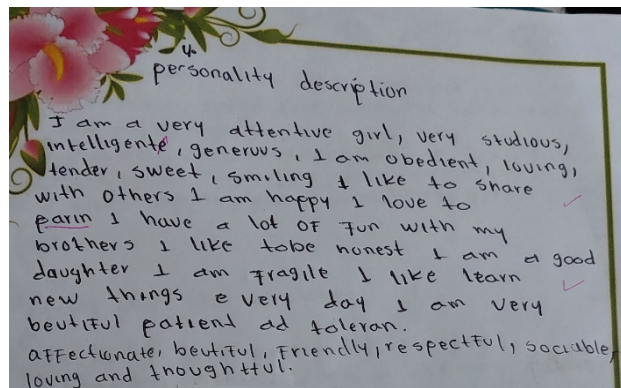 personality description
I am a very attentive girl, very studious,
intelligente, generous, I am obedient, loving,
tender, sweet, smiling I like to share
with others I am happy I love to
earin I have a lot of fun with my
brothers I like tobe honest I am a good
daughter I am fragile I like learn
new things every day I am very
beutiful patient ad toleran.
affectionate, beutiful, friendly, respectful, sociable,
loving and thoughtful.